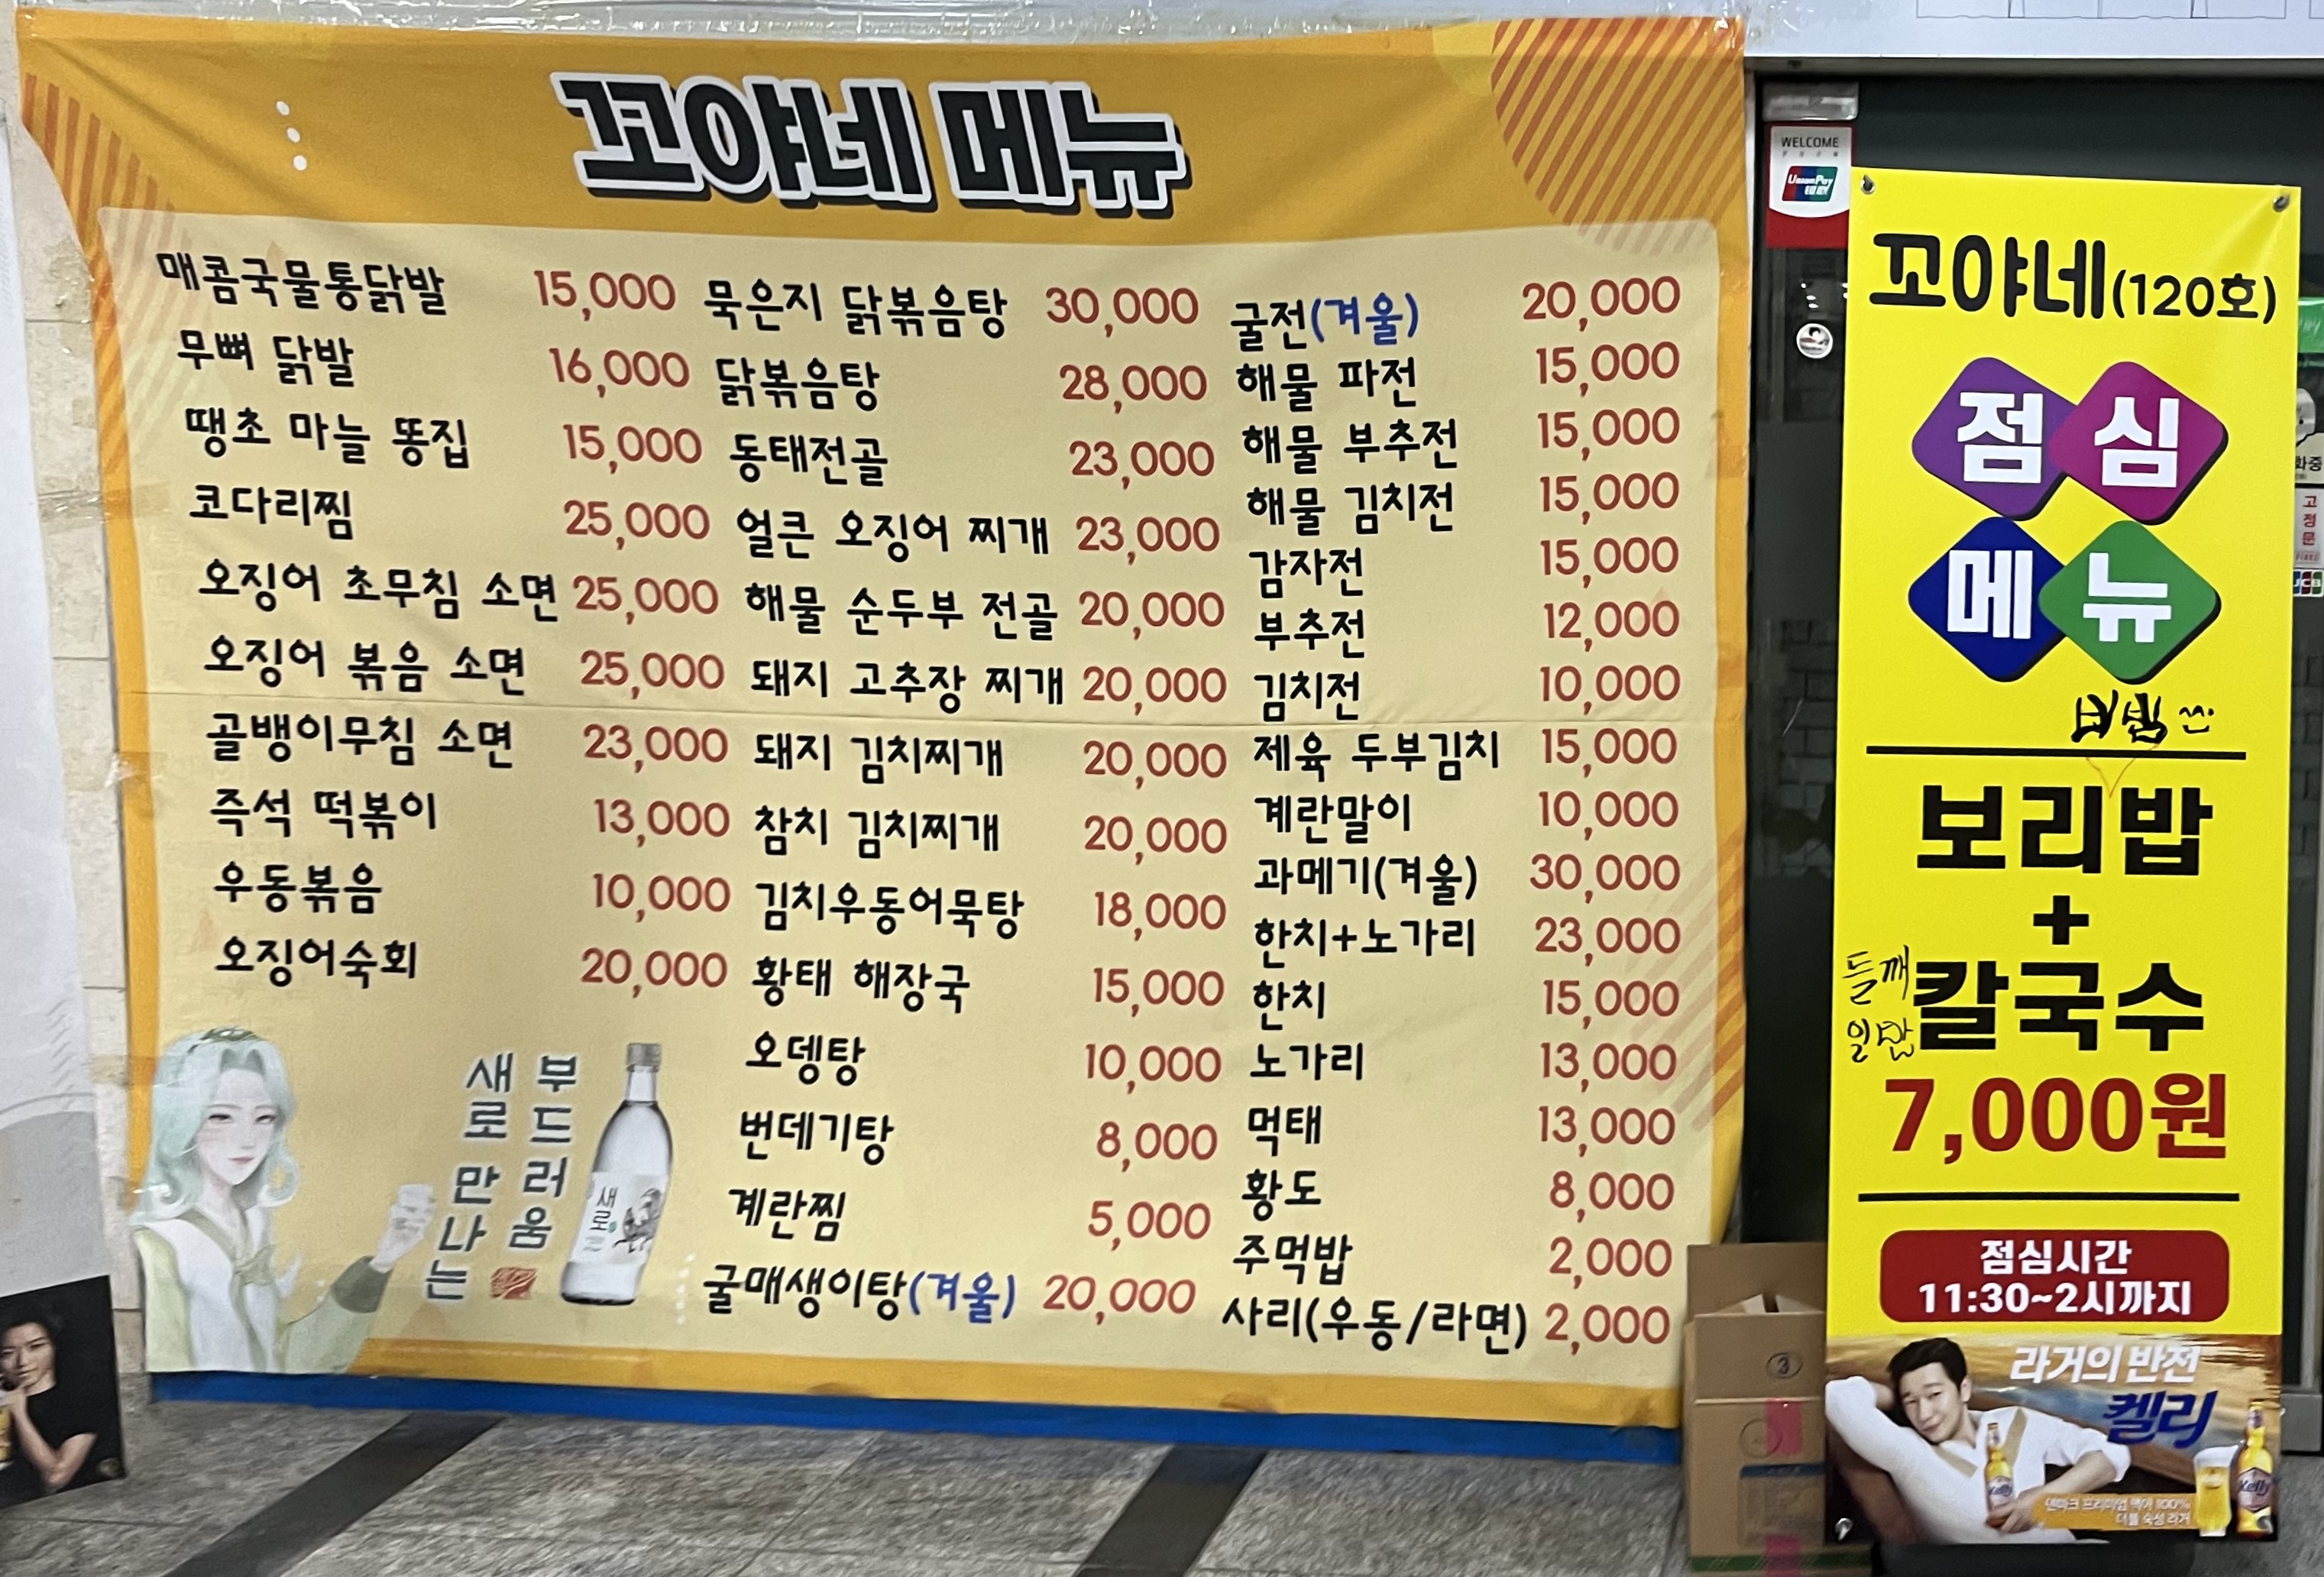 꼬야네 메뉴
매콤국물통닭발 15,000
무뼈 닭발 16,000
땡초 마늘 똥집 15,000
코다리찜 25,000
오징어 초무침 소면 25,000
오징어 볶음 소면 25,000
골뱅이무침 소면 23,000
즉석 떡볶이 13,000
우동볶음 10,000
오징어숙회 20,000
부드러움
새로 만나는
새로
묵은지 닭볶음탕 30,000
닭볶음탕 28,000
동태전골 23,000
얼큰 오징어 찌개 23,000
해물 순두부 전골 20,000
돼지 고추장 찌개 20,000
돼지 김치찌개 20,000
참치 김치찌개 20,000
김치우동어묵탕 18,000
황태 해장국 15,000
오뎅탕 10,000
번데기탕 8,000
계란찜 5,000
굴매생이탕(겨울) 20,000
굴전(겨울) 20,000
해물 파전 15,000
해물 부추전 15,000
해물 김치전 15,000
감자전 15,000
부추전 12,000
김치전 10,000
제육 두부김치 15,000
계란말이 10,000
과메기(겨울) 30,000
한치+노가리 23,000
한치 15,000
노가리 13,000
먹태 13,000
황도 8,000
주먹밥 2,000
사리(우동/라면) 2,000
WELCOME
UnionPay
银联
꼬야네(120호)
점심
메뉴
보리밥
+
들깨
일반
칼국수
7,000원
점심시간
11:30~2시까지
라거의 반전
켈리
덴마크 프리미엄 맥아 100%
더블 숙성 라거
Kelly
Kelly
3
화중
고정문
JCB